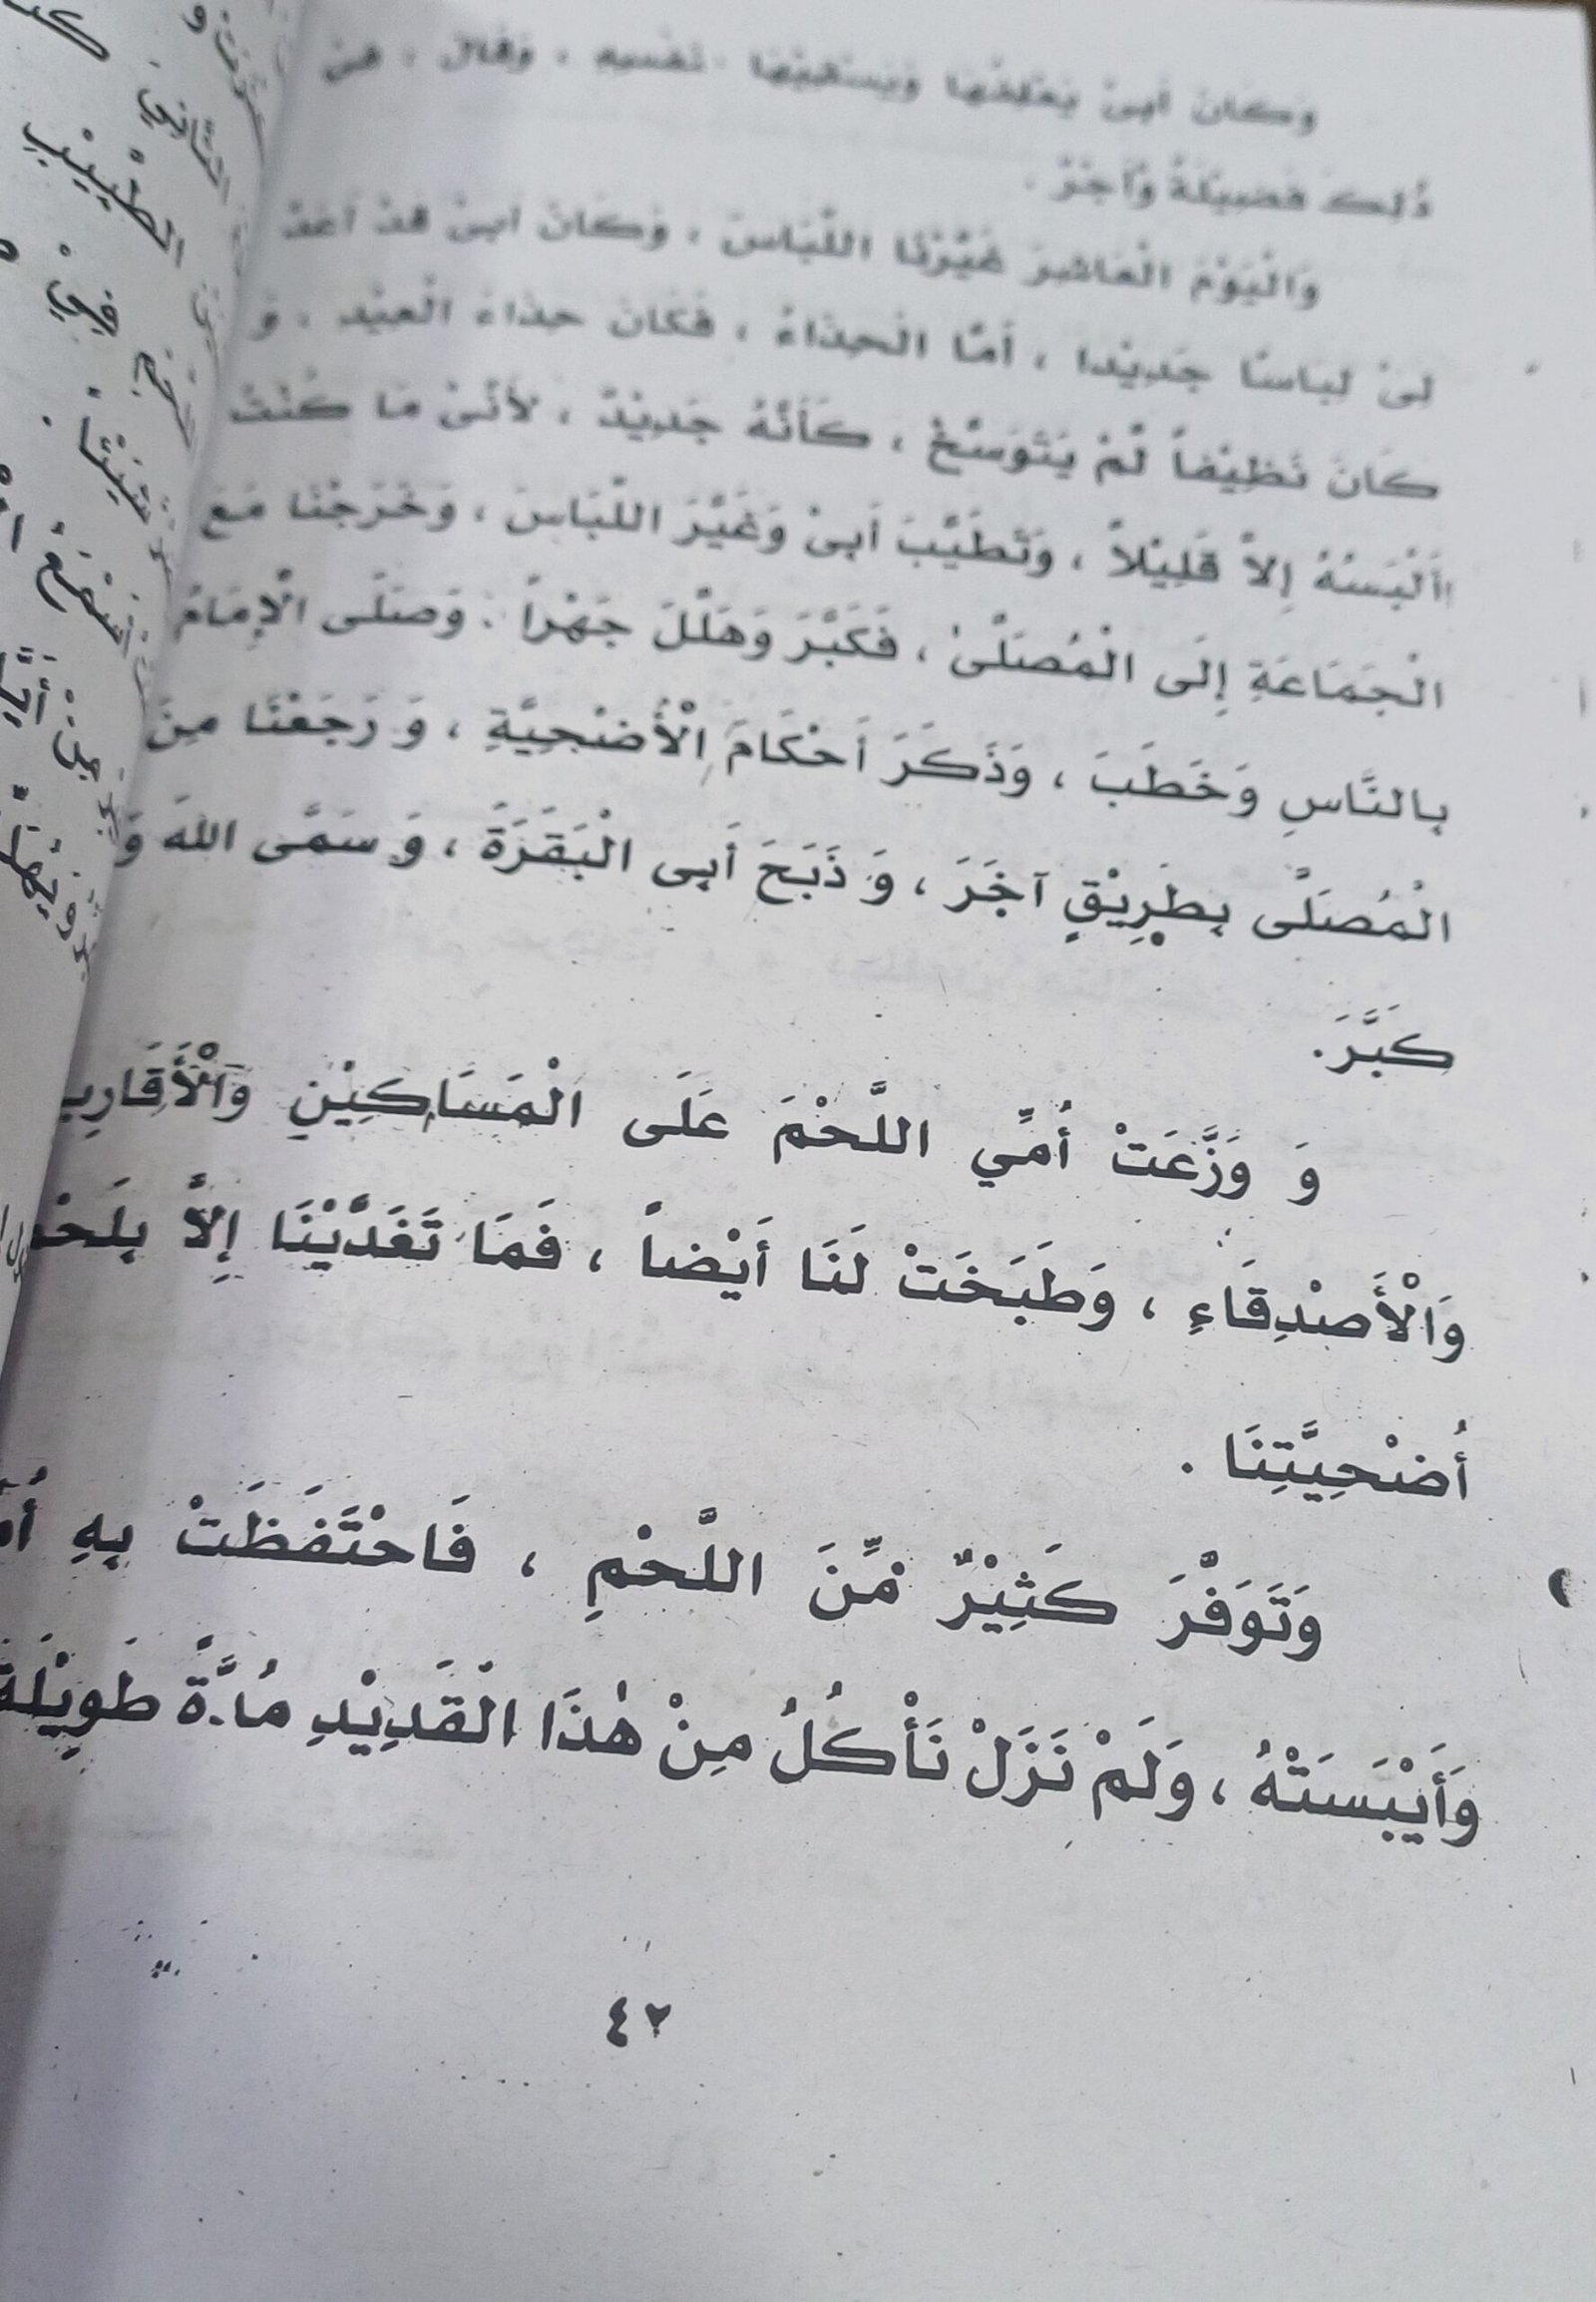 وَكَانَ أَبِىْ يَعْلِفُهَا وَيَسْقِيْهَا بِنَفْسِهِ ، وَقَالَ ، فِىْ
ذٰلِكَ فَضِيْلَةٌ وَّأَجْرٌ .
وَالْيَوْمَ الْعَاشِرَ غَيَّرْنَا اللِّبَاسَ ، وَكَانَ أَبِىْ قَدْ أَعَدَّ
لِىْ لِبَاسًا جَدِيْدًا ، أَمَّا الْحِذَاءُ ، فَكَانَ حِذَاءَ الْعِيْدِ ، وَ
كَانَ نَظِيْفاً لَّمْ يَتَوَسَّخْ ، كَأَنَّهُ جَدِيْدٌ ، لِأَنِّىْ مَا كُنْتُ
أَلْبَسُهُ إِلاَّ قَلِيْلاً ، وَتَطَيَّبَ أَبِىْ وَغَيَّرَ اللِّبَاسَ ، وَخَرَجْنَا مَعَ
الْجَمَاعَةِ إِلَى الْمُصَلّٰى ، فَكَبَّرَ وَهَلَّلَ جَهْراً . وَصَلَّى الْإِمَامُ
بِالنَّاسِ وَخَطَبَ ، وَذَكَرَ أَحْكَامَ الْأُضْحِيَّةِ ، وَ رَجَعْنَا مِنَ
الْمُصَلّٰى بِطَرِيْقٍ آخَرَ ، وَ ذَبَحَ أَبِى الْبَقَرَةَ ، وَ سَمَّى اللهَ وَ
كَبَّرَ.
وَ وَزَّعَتْ أُمِّي اللَّحْمَ عَلَى الْمَسَاكِيْنِ
وَالْأَصْدِقَاءِ ، وَطَبَخَتْ لَنَا أَيْضاً ، فَمَا تَغَدَّيْنَا إِلاَّ
أُضْحِيَّتِنَا .
وَتَوَفَّرَ كَثِيْرٌ مِّنَ اللَّحْمِ ، فَاحْتَفَظَتْ بِهِ
وَأَيْبَسَتْهُ ، وَلَمْ نَزَلْ نَأْكُلُ مِنْ هٰذَا الْقَدِيْدِ مُدَّةً طَوِيْلَةً
٤٢